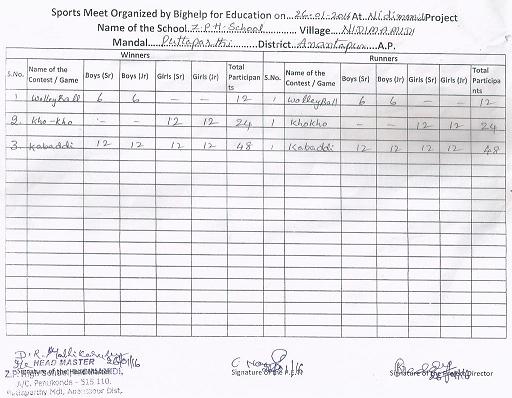 Sports Meet Organized by Bighelp for Education on...26-01-2016 At Nidimamidi Project
Name of the School Z.P.H. School Village NIDIMAMIDI
Mandal Puttaparthi District Anantapur A.P.
Winners Runners
S.No. Name of the Contest / Game Boys (Sr) Boys (Jr) Girls (Sr) Girls (Jr) Total Participants S.No. Name of the Contest / Game Boys (Sr) Boys (Jr) Girls (Sr) Girls (Jr) Total Participants
1 WolleyBall 6 6 - - 12 1 WolleyBall 6 6 - - 12
2. Kho-kho - - 12 12 24 1 Khokho 12 12 24
3 Kabaddi 12 12 12 12 48 1 Kabaddi 12 12 12 12 48
D.R.
HEAD MASTER 26/01/16
Z.P. High School
Signature of the Signature of the Signature of the Project Director
A/C. Penukonda - 515 110.
Puttaparthy Mdl, Anantapur Dist.